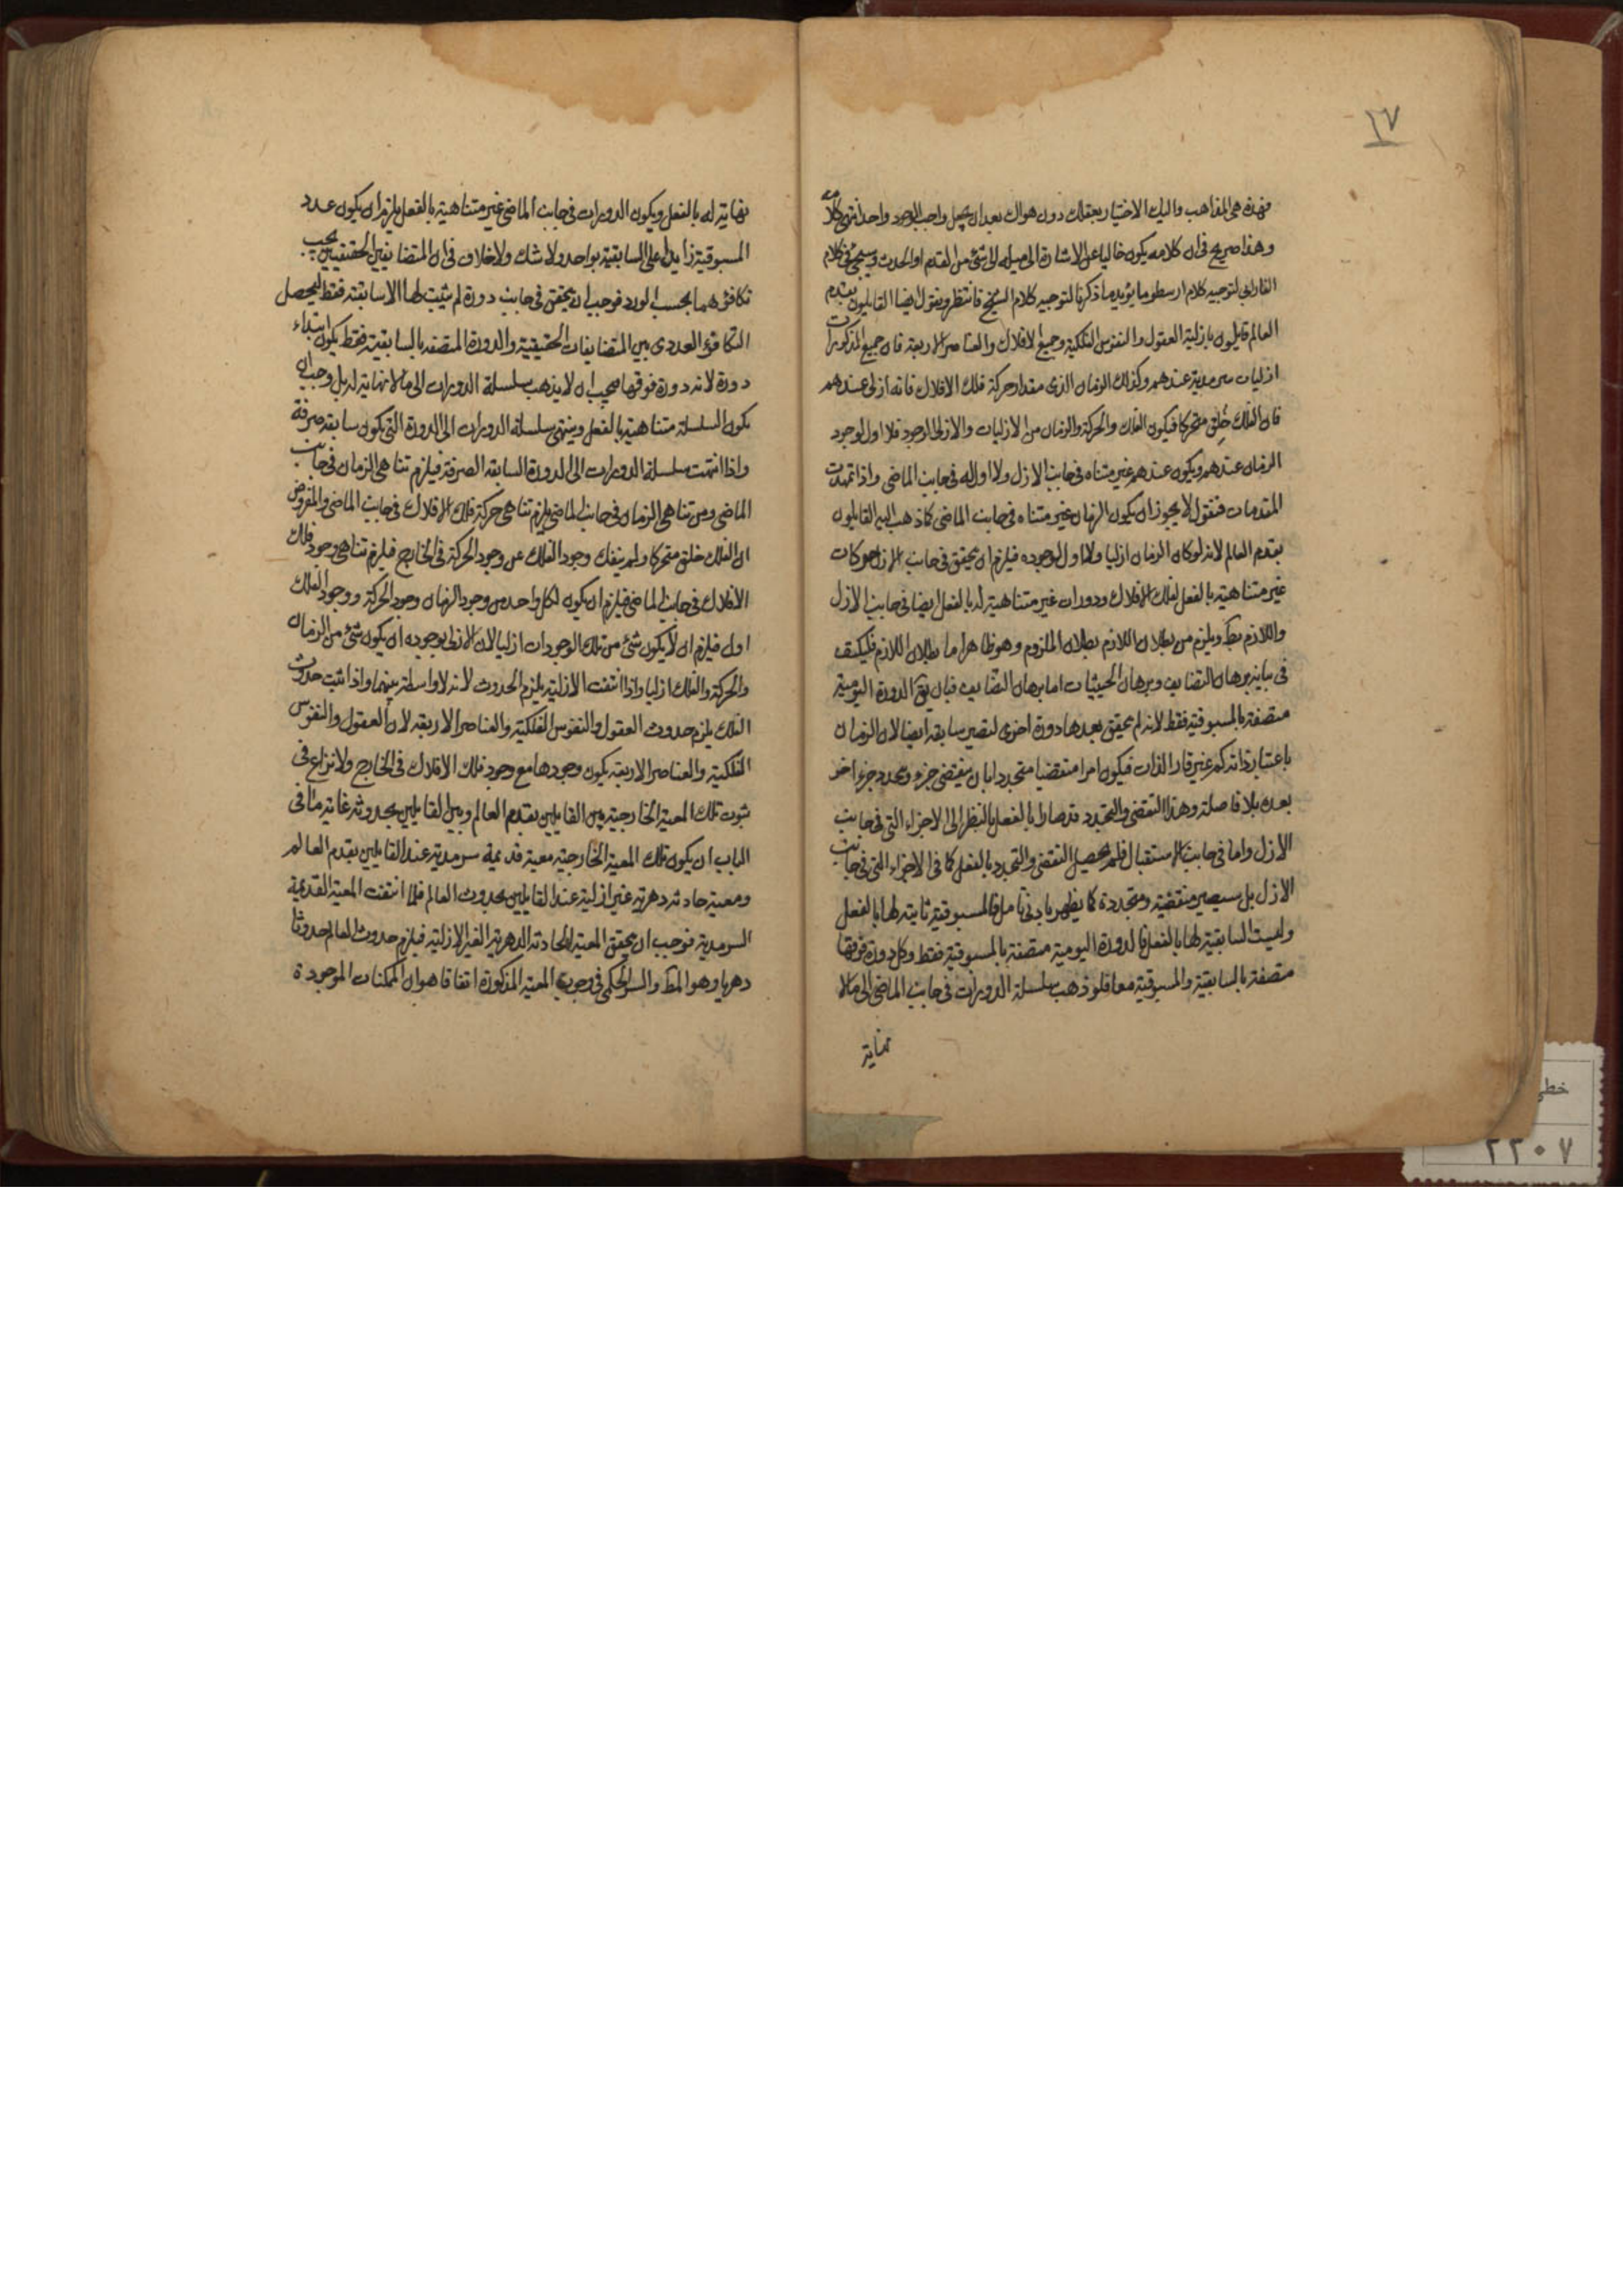 ٢٧
فهذه هي المذاهب واليك الاختيار بعقلك دون هواك بعد ان يجعل واجب الوجود واحدا انتهى كلامه
وهذا صريح في ان كلامه يكون خاليا عن الاشارة الى ميله الى شئ من القدم او الحدث وسيجئ في كلام
الفارابي لتوجيه كلام ارسطو ما يؤيد ما ذكرنا لتوجيه كلام الشيخ فانتظر ونقول ايضا القايلون بقدم
العالم قايلون بازلية العقول والنفوس الفلكية وجميع الافلاك والعناصر الاربعة فان جميع المذكورات
ازليات سرمدية عندهم وكذلك الزمان الذى مقدار حركة فلك الافلاك فانه ازلى عندهم
فان الفلك خلق متحركا فيكون الفلك والحركة والزمان من الازليات والازلى الوجود فلا اول لوجود
الزمان عندهم ويكون عندهم غير متناه في جانب الازل ولا اول له في جانب الماضى واذا تمهدت
المقدمات فنقول لا يجوز ان يكون الزمان غير متناه في جانب الماضى كما ذهب اليه القايلون
بقدم العالم لانه لو كان الزمان ازليا ولا اول لوجوده فيلزم ان يتحقق في جانب الازل حركات
غير متناهية بالفعل لفلك الافلاك ودورات غير متناهية له بالفعل ايضا في جانب الازل
واللازم بط ويلزم من بطلان اللازم بطلان الملزوم وهو ظاهر اما بطلان اللازم فليكتف
في بيانه برهان التضايف وبرهان الحيثيات اما برهان التضايف فبان يق الدورة اليومية
متصفة بالمسبوقية فقط لانه لم يتحقق بعدها دورة اخرى لتصير سابقة ايضا لان الزمان
باعتبار ذاته كم غير قار الذات فيكون امرا منقضيا متجددا بان ينقضى جزء ويتجدد جزء اخر
بعده بلا فاصلة وهذا التقضى والتجدد قد صارا بالفعل بالنظر الى الاجزاء التى في جانب
الازل واما في جانب الاستقبال فلم يحصل التقضى والتجدد بالفعل كما في الاجزاء التى في جانب
الازل بل سيصير منقضية ومتجددة كما يظهر بادنى تأمل فالمسبوقية ثابتة لها بالفعل
وليست السابقية لها بالفعل فالدورة اليومية متصفة بالمسبوقية فقط وكل دورة فوقها
متصفة بالسابقية والمسبوقية معا فلو ذهب سلسلة الدورات في جانب الماضى الى ما لا
نهاية
نهاية له بالفعل ويكون الدورات في جانب الماضى غير متناهية بالفعل يلزم ان يكون عدد
المسبوقية زايدا على السابقية بواحد ولا شك ولا خلاف في ان المتضايفين الحقيقيين يجب
تكافؤهما بحسب فوجب ان يتحقق في جانب دورة لم يثبت لها الا سابقته فقط ليحصل
التكافؤ العددى بين المتضايفات الحقيقية والدورة المتصفة بالسابقية فقط يكون ابتداء
دورة لانه دورة فوقها فيجب ان لا يذهب سلسلة الدورات الى ما لا نهاية له بل وجب ان
يكون السلسلة متناهية بالفعل وينتهى سلسلة الدورات الى الدورة التى يكون سابقة صرفة
واذا انتهت سلسلة الدورات الى الدورة السابقة الصرفة فيلزم تناهى الزمان في جانب
الماضى ومن تناهى الزمان في جانب الماضى يلزم تناهى حركة فلك الافلاك في جانب الماضى والمفروض
ان الفلك خلق متحركا ولم ينفك وجود الفلك عن وجود الحركة في الخارج فيلزم تناهى وجود فلك
الافلاك في جانب الماضى فيلزم ان يكون لكل واحد من وجود الزمان وجود الحركة ووجود الفلك
اول فيلزم ان لا يكون شئ من تلك الوجودات ازليا لان الازلى لوجوده ان يكون شئ من الزمان
والحركة والفلك ازليا واذا انتفت الازلية يلزم الحدوث لانه لا واسطة بينهما واذا ثبت حدوث
الفلك يلزم حدوث العقول والنفوس الفلكية والعناصر الاربعة لان العقول والنفوس
الفلكية والعناصر الاربعة يكون وجودها مع وجود فلك الافلاك في الخارج ولا نزاع في
ثبوت تلك المعية الخارجية بين القايلين بقدم العالم وبين القايلين بحدوثه غاية ما في
الباب ان يكون تلك المعية الخارجية معية قديمة سرمدية عند القايلين بقدم العالم
ومعية حادثة دهرية غير ازلية عند القايلين بحدوث العالم فلما انتفت المعية القديمة
السرمدية فوجب ان يتحقق المعية الحادثة الدهرية الغير الازلية فيلزم حدوث العالم حدوثا
دهريا وهو المط والسر الحكمى في وجوب المعية المذكورة اتفاقا هو ان الممكنات الموجودة
خطى
٢٣٠٧